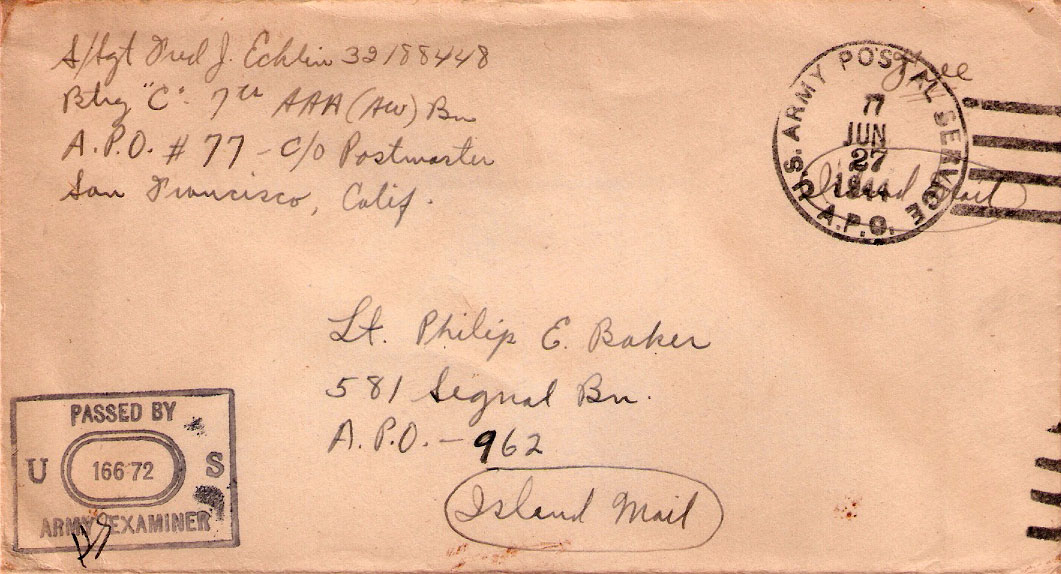 S/Sgt Fred J. Echlin 32188448
Btry "C" 7th AAA (AW) Bn
A.P.O. # 77 - C/O Postmaster
San Francisco, Calif.
Free
U.S. ARMY POSTAL SERVICE
77
JUN
27
1944
A.P.O.
Island Mail
Lt. Philip E. Baker
581 Signal Bn.
A.P.O. - 962
Island Mail
PASSED BY
U 16672 S
ARMY EXAMINER